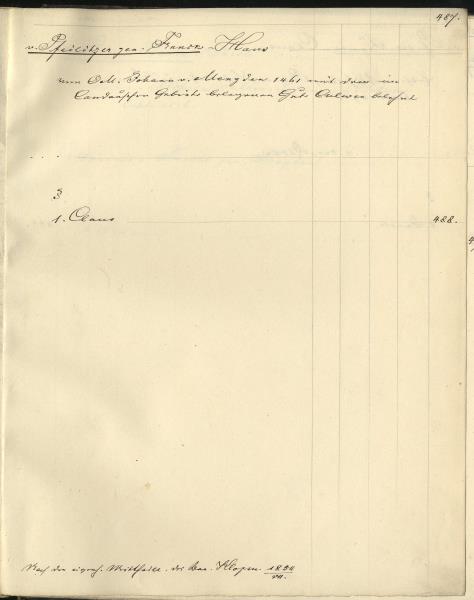 487.
v. Pfeilitzer gen. Franck - Hans
vom O.M. Johann v. Mengden 1461 mit dem im
Candauschen Gebiete belegenen Gute belehnt
3
1. Claus 488.
Nach der eigenh. Mittheil. des Bar. Klopm. 1834